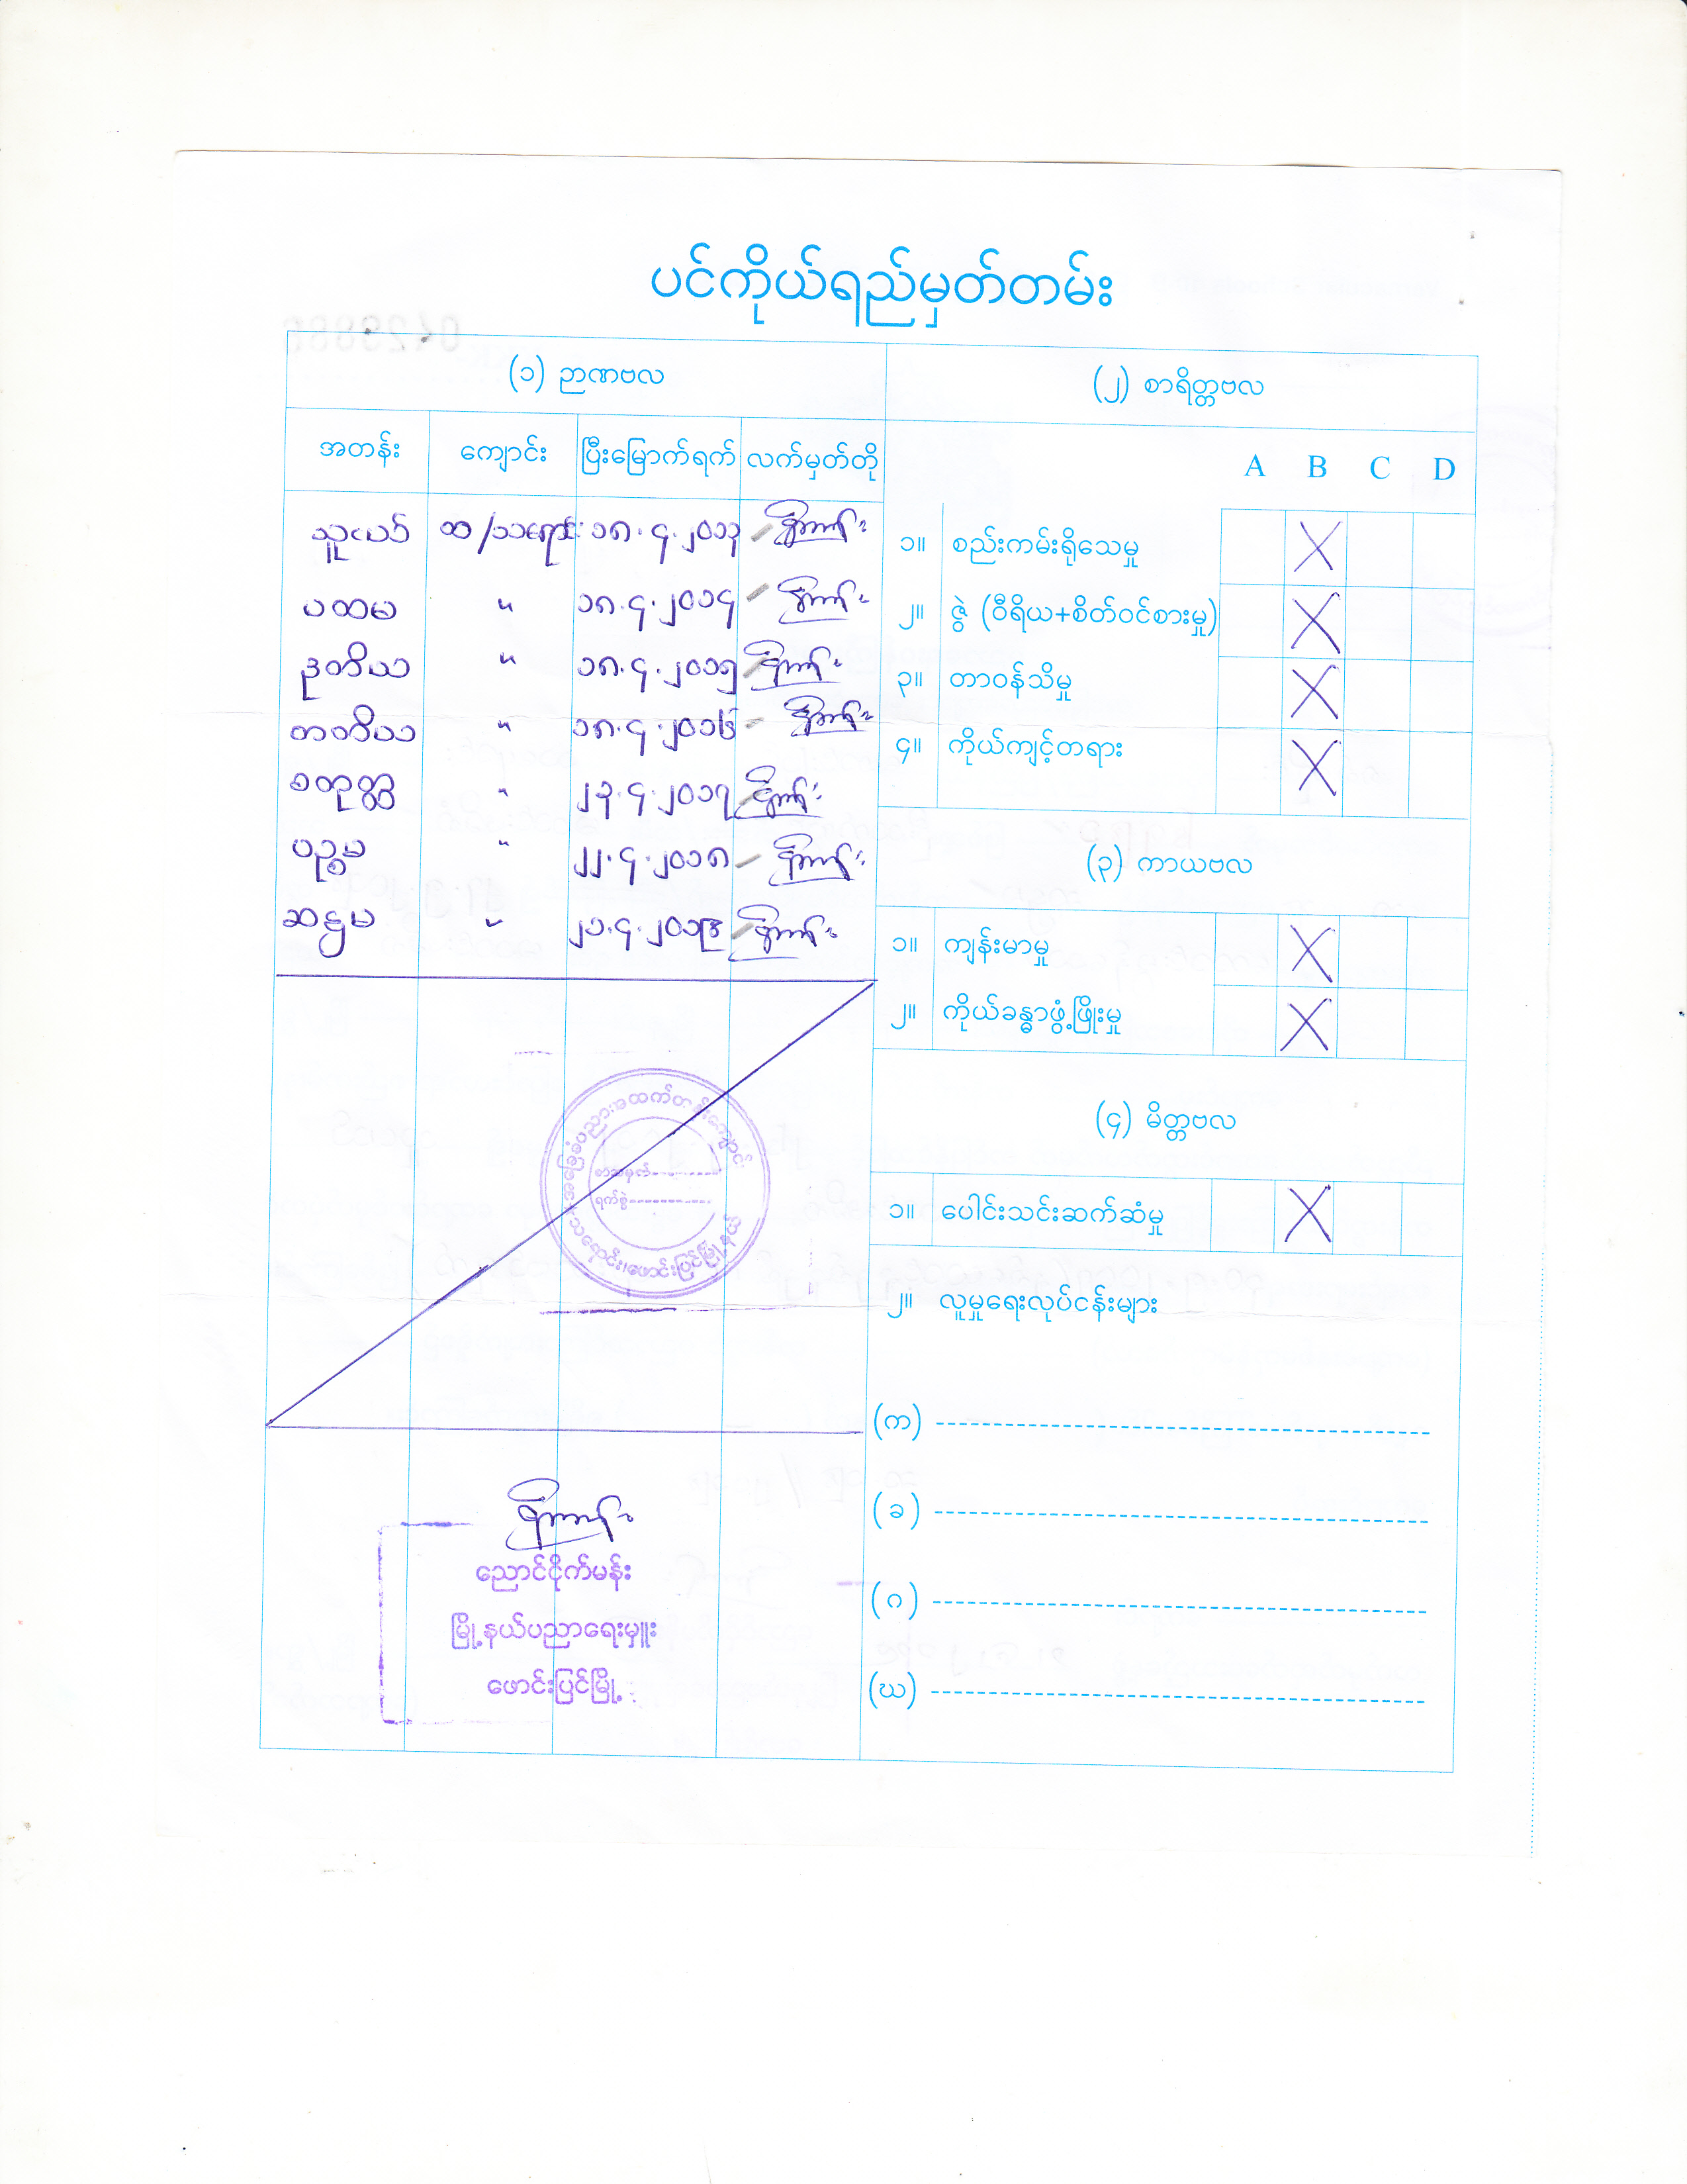 ပင်ကိုယ်ရည်မှတ်တမ်း
(၁) ဉာဏဗလ
အတန်း ကျောင်း ပြီးမြောက်ရက် လက်မှတ်တို
သူငယ် ထ/သရောင်း ၁၈.၄.၂၀၁၃
ပထမ " ၁၈.၄.၂၀၁၄
ဒုတိယ " ၁၈.၄.၂၀၁၅
တတိယ " ၁၈.၄.၂၀၁၆
စတုတ္ထ " ၂၃.၄.၂၀၁၇
ပဉ္စမ " ၂၂.၄.၂၀၁၈
ဆဋ္ဌမ " ၂၁.၄.၂၀၁၉
အခြေခံပညာအထက်တန်းကျောင်း
စာအမှတ်
ရက်စွဲ
သရောင်း၊ဖောင်းပြင်မြို့နယ်
ညောင်ငိုက်မန်း
မြို့နယ်ပညာရေးမှူး
ဖောင်းပြင်မြို့
(၂) စာရိတ္တဗလ
A B C D
၁။ စည်းကမ်းရိုသေမှု X
၂။ ဇွဲ (ဝီရိယ+စိတ်ဝင်စားမှု) X
၃။ တာဝန်သိမှု X
၄။ ကိုယ်ကျင့်တရား X
(၃) ကာယဗလ
၁။ ကျန်းမာမှု X
၂။ ကိုယ်ခန္ဓာဖွံ့ဖြိုးမှု X
(၄) မိတ္တဗလ
၁။ ပေါင်းသင်းဆက်ဆံမှု X
၂။ လူမှုရေးလုပ်ငန်းများ
(က)
(ခ)
(ဂ)
(ဃ)